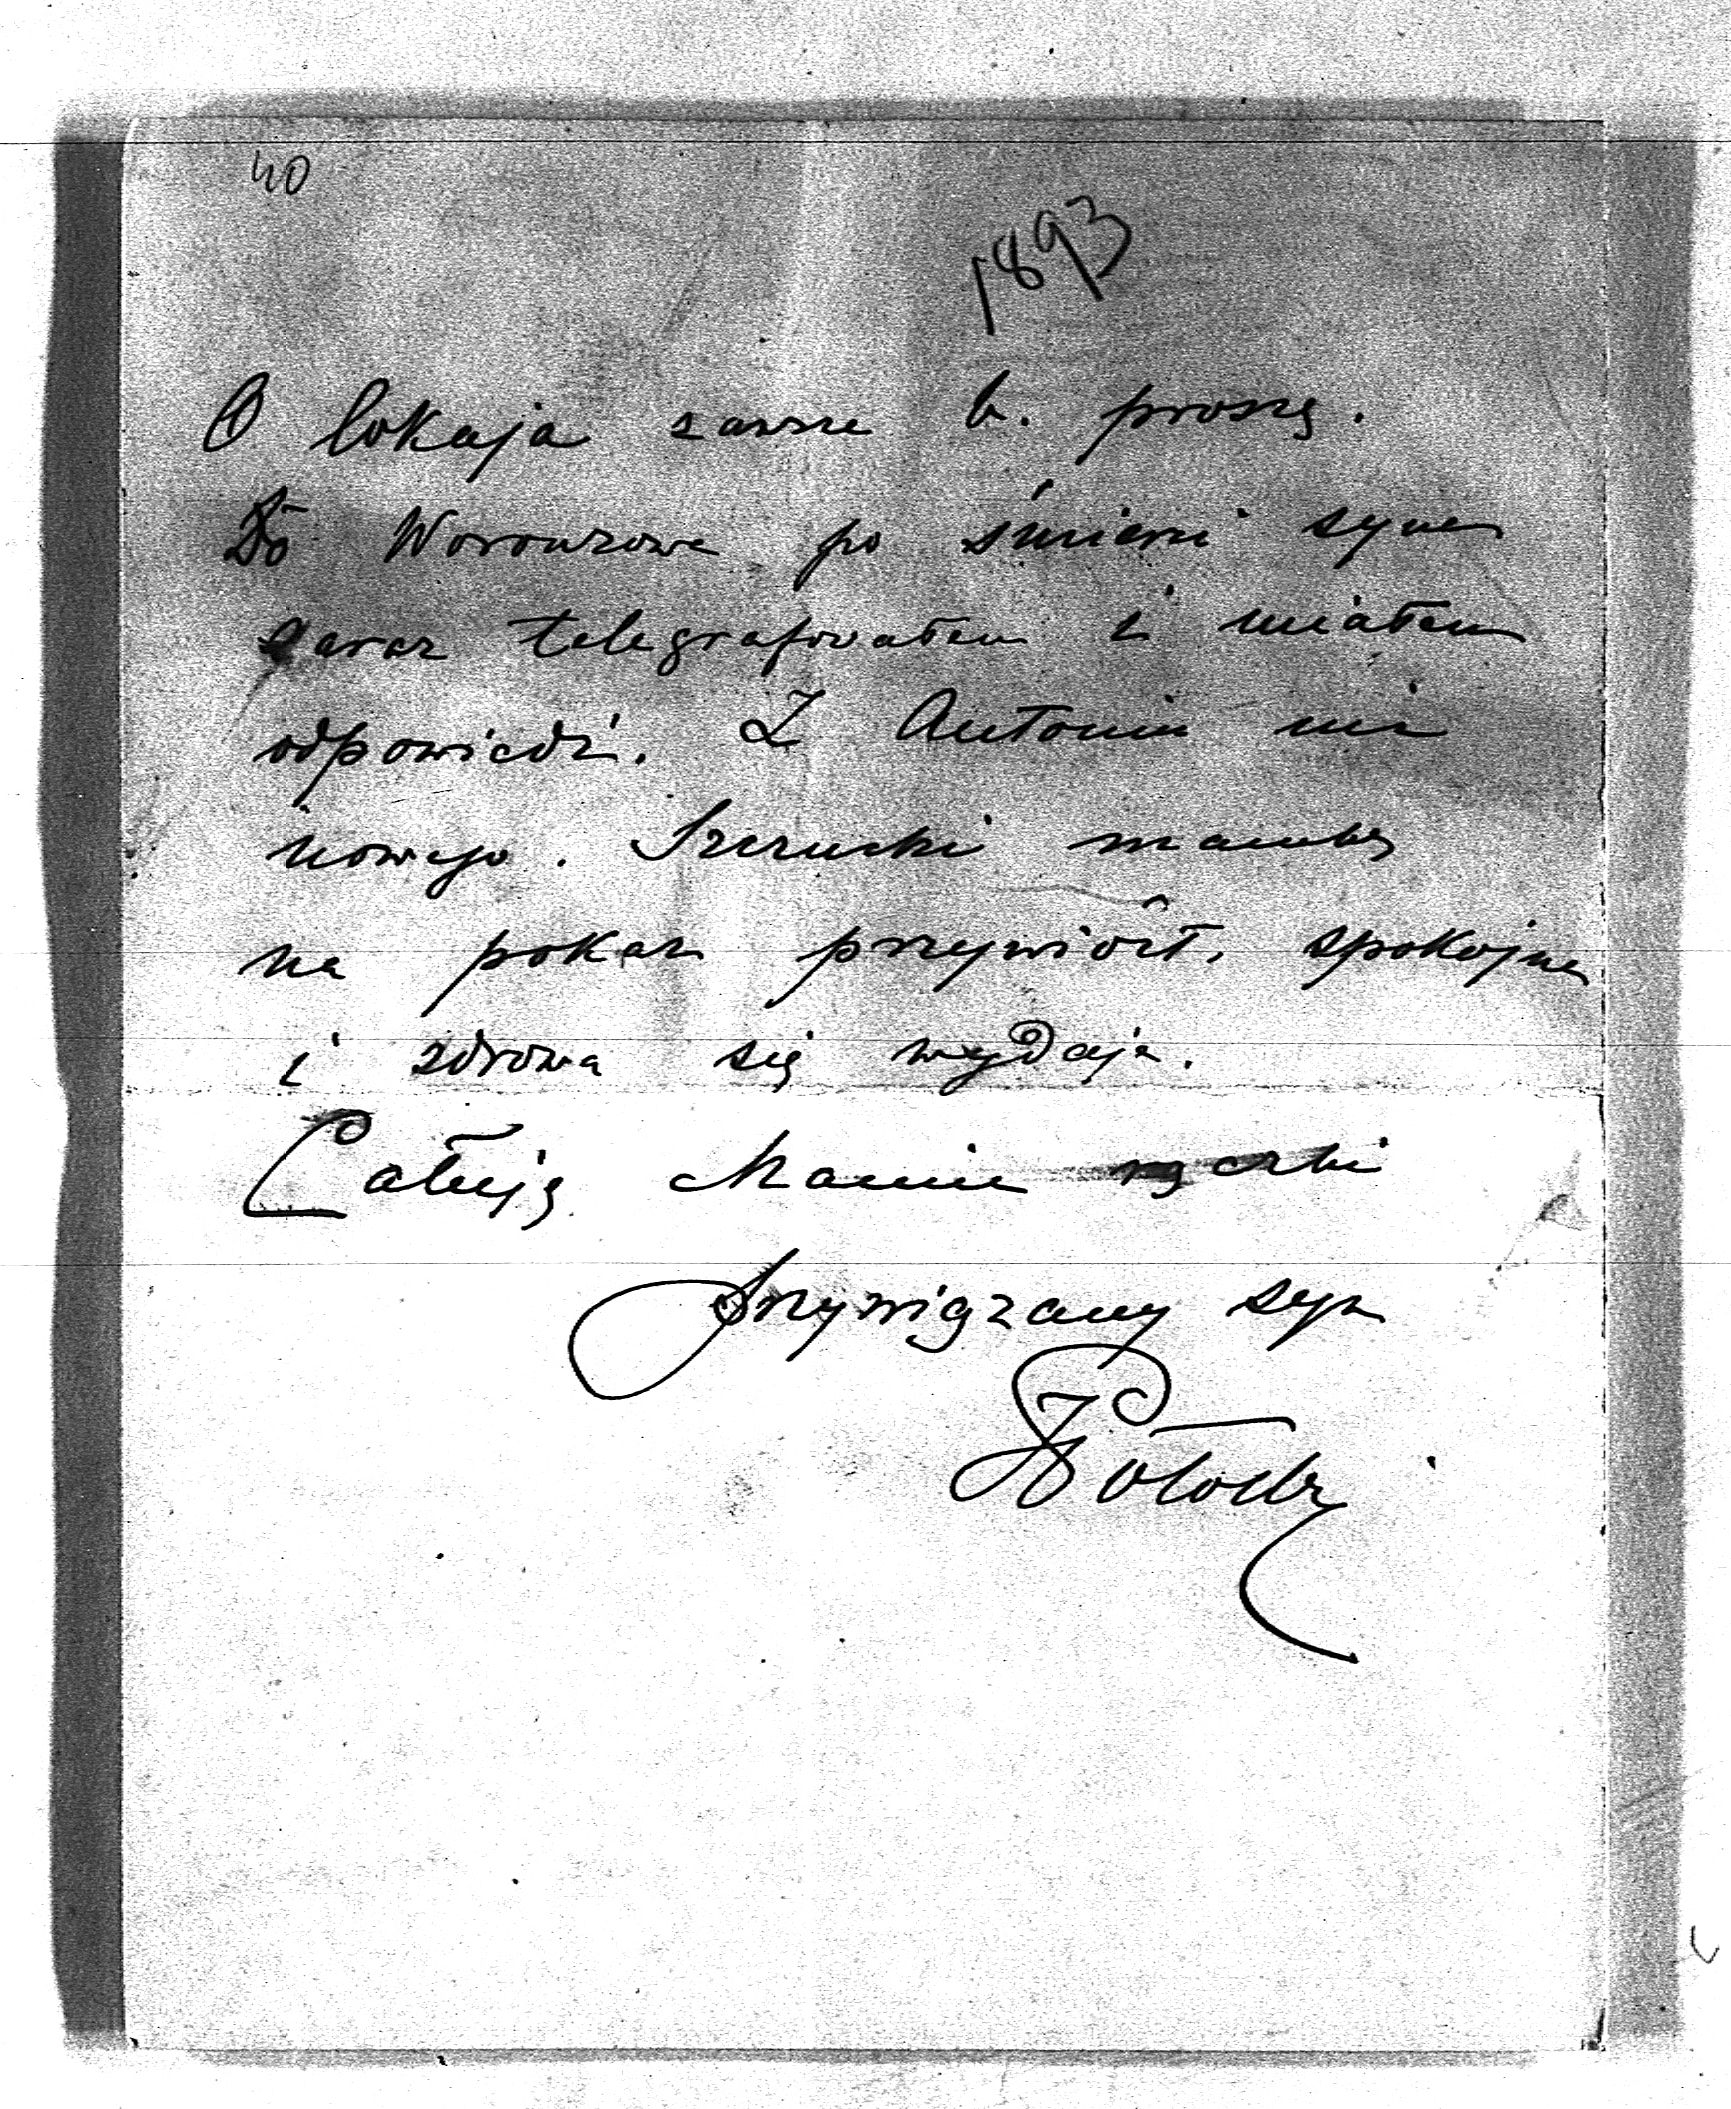 40
1893
O lokaja zawsze b. proszę.
Do Woronzowa po śmierci syna
zaraz telegrafowałem i miałem
odpowiedź. Z Antonin nic
nowego. Szczucki mamkę
na pokaz przywiózł, spokojna
i zdrowa się wydaje.
Całuję Mamie rączki
Przywiązany syn
JPotocki